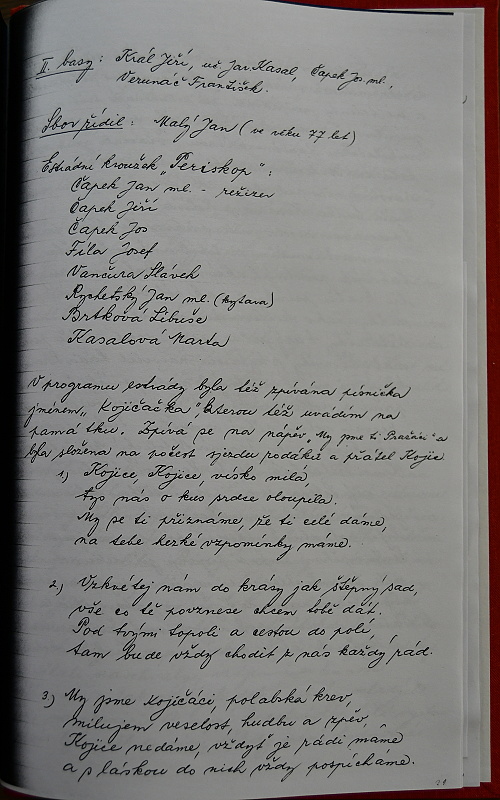 II. basy: Král Jiří, uč. Jar. Kasal, Čapek Jos ml.,
Verunáč František.
Sbor řídil: Malý Jan (ve věku 77 let)
Estrádní kroužek „Periskop“:
Čapek Jan ml. - režizer
Čapek Jiří
Čapek Jos
Fila Josef
Vančura Slávek
Rychetský Jan ml. (kytara)
Brtková Libuše
Kasalová Marta
V programu estrády byla též zpívána písnička
jménem „Kojičačka“, kterou též uvádím na
památku. Zpívá se na nápěv „My jsme ti Pražáci“ a
byla složena na počest sjezdu rodáků a přátel Kojic
1) Kojice, Kojice, vísko milá,
tys nás o kus srdce oloupila.
My se ti přiznáme, že ti celé dáme,
na tebe hezké vzpomínky máme.
2) Vzkvétej nám do krásy jak štěpný sad,
vše co tě povznese chcem tobě dát.
Pod tvými topoli a cestou do polí,
tam bude vždy chodit z nás každý rád.
3) My jsme Kojičáci, polabská krev,
milujem veselost hudbu a zpěv,
Kojice nedáme, vždyť je rádi máme
a s láskou do nich vždy pospícháme.
21